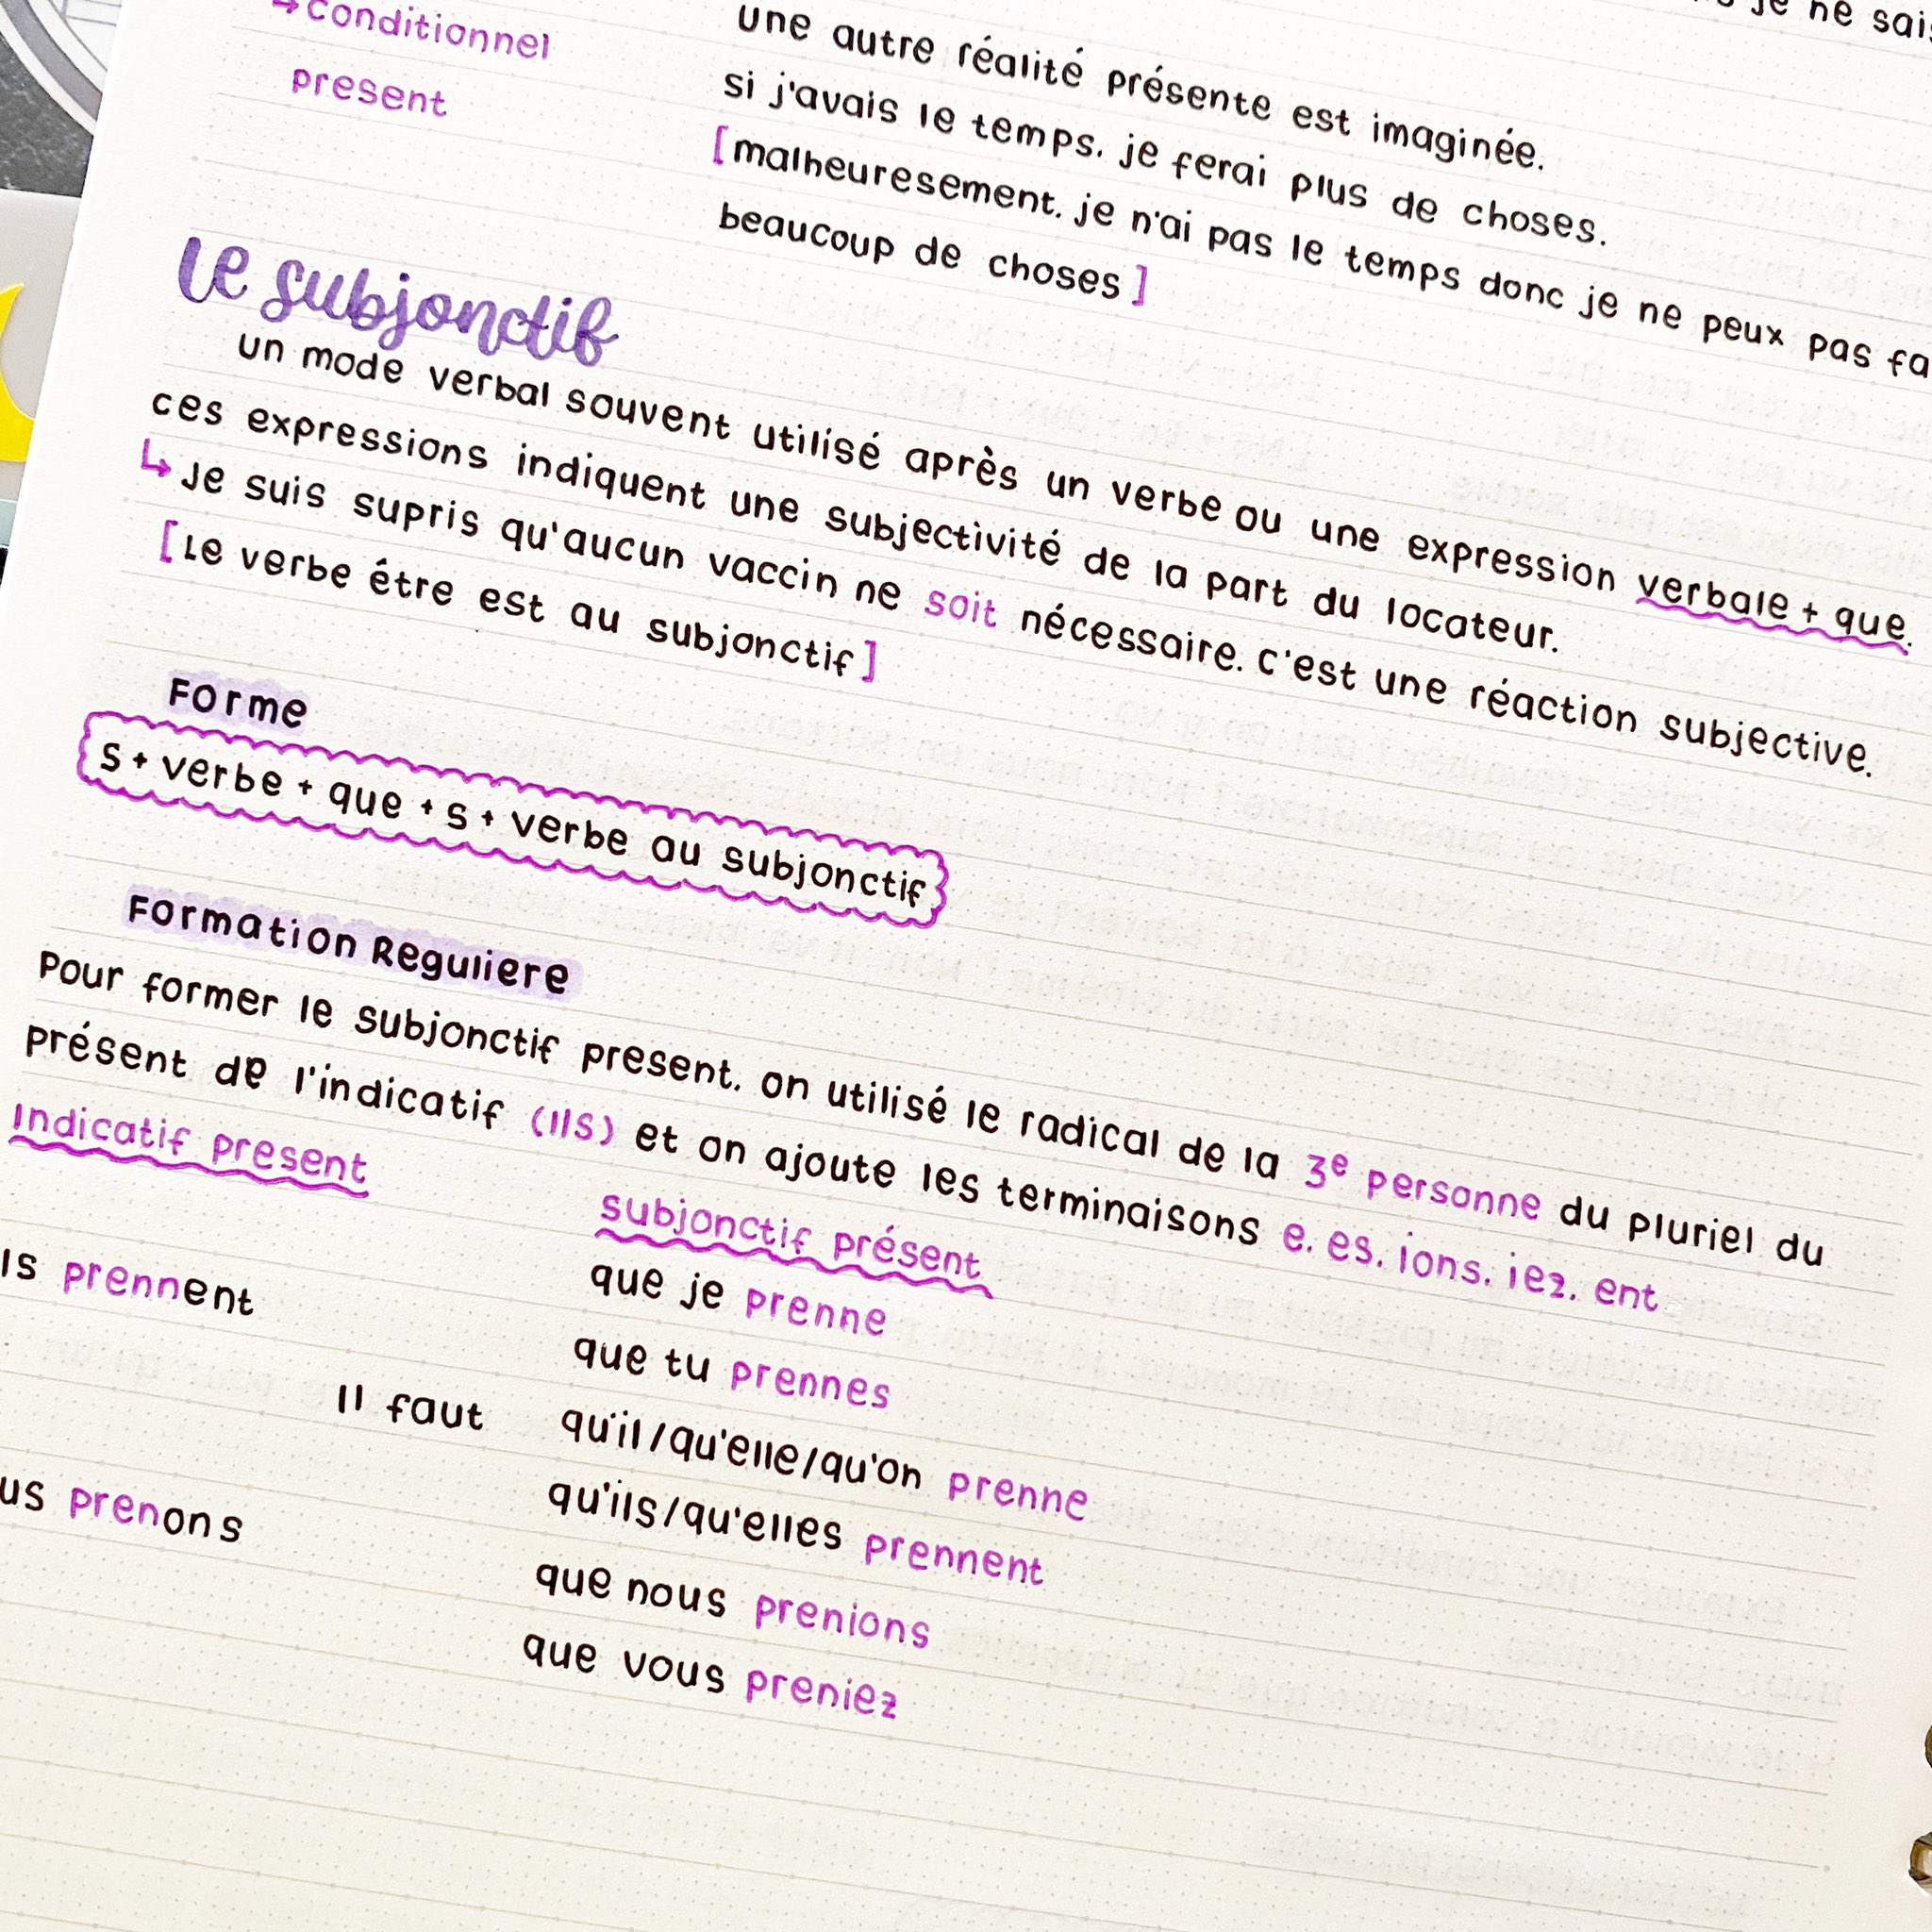 je ne sais
→ conditionnel
present
une autre réalité présente est imaginée.
si j'avais le temps. je ferai plus de choses.
[malheuresement. je n'ai pas le temps donc je ne peux pas fa
beaucoup de choses]
Le subjonctif
un mode verbal souvent utilisé après un verbe ou une expression verbale + que.
ces expressions indiquent une subjectivité de la part du locateur.
↳ Je suis supris qu'aucun vaccin ne soit nécessaire. C'est une réaction subjective.
[Le verbe être est au subjonctif]
Forme
S + verbe + que + S + verbe au subjonctif
Formation Reguliere
Pour former le subjonctif present. on utilisé le radical de la 3e personne du pluriel du
présent de l'indicatif (IlS) et on ajoute les terminaisons e. es. ions. iez. ent
Indicatif present
subjonctif présent
ls prennent
que je prenne
que tu prennes
Il faut
qu'il/qu'elle/qu'on prenne
us prenons
qu'ils/qu'elles prennent
que nous prenions
que vous preniez